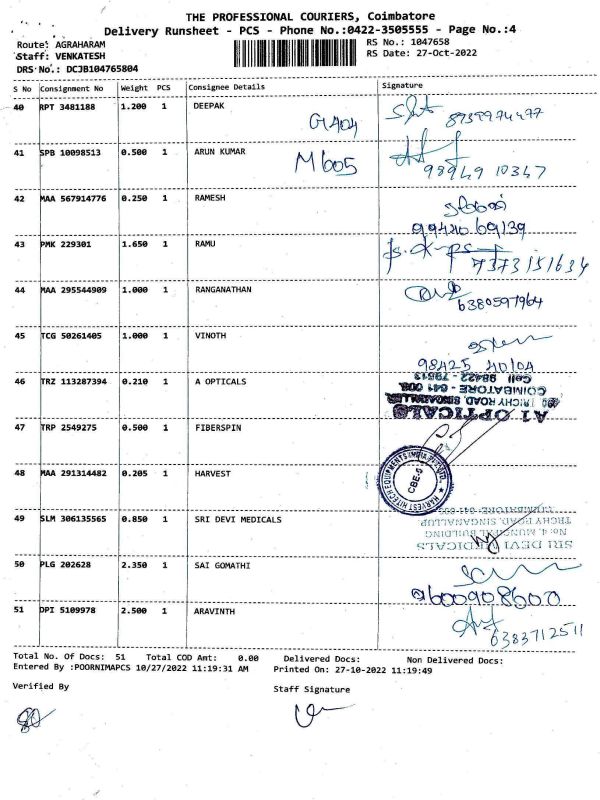 THE PROFESSIONAL COURIERS, Coimbatore
Delivery Runsheet - PCS - Phone No.:0422-3505555 - Page No.:4
Route: AGRAHARAM
RS No.: 1047658
Staff: VENKATESH
RS Date: 27-Oct-2022
DRS No.: DCJB104765804
S No Consignment No Weight PCS Consignee Details Signature
40 RPT 3481188 1.200 1 DEEPAK
G1404 8939974477
41 SPB 10098513 0.500 1 ARUN KUMAR
M605 98949 10347
42 MAA 567914776 0.250 1 RAMESH
99420 69139
43 PMK 229301 1.650 1 RAMU
7373151634
44 MAA 295544909 1.000 1 RANGANATHAN
6380597964
45 TCG 50261405 1.000 1 VINOTH
98425 40104
46 TRZ 113287394 0.210 1 A OPTICALS
Cell 98422 - 79513
COIMBATORE - 641 005.
TRICHY ROAD, SINGANALLUR,
A1 OPTICALS
47 TRP 2549275 0.500 1 FIBERSPIN
48 MAA 291314482 0.205 1 HARVEST
HARVEST HITECH EQUIPMENTS INDIA PVT LTD.
CBE-5
49 SLM 306135565 0.850 1 SRI DEVI MEDICALS
TRICHY ROAD, SINGANALLUR
BUILDING
SRI DEVI MEDICALS
50 PLG 202628 2.350 1 SAI GOMATHI
9600908600
51 DPI 5109978 2.500 1 ARAVINTH
6383712511
Total No. Of Docs: 51 Total COD Amt: 0.00 Delivered Docs: Non Delivered Docs:
Entered By :POORNIMAPCS 10/27/2022 11:19:31 AM Printed On: 27-10-2022 11:19:49
Verified By
Staff Signature